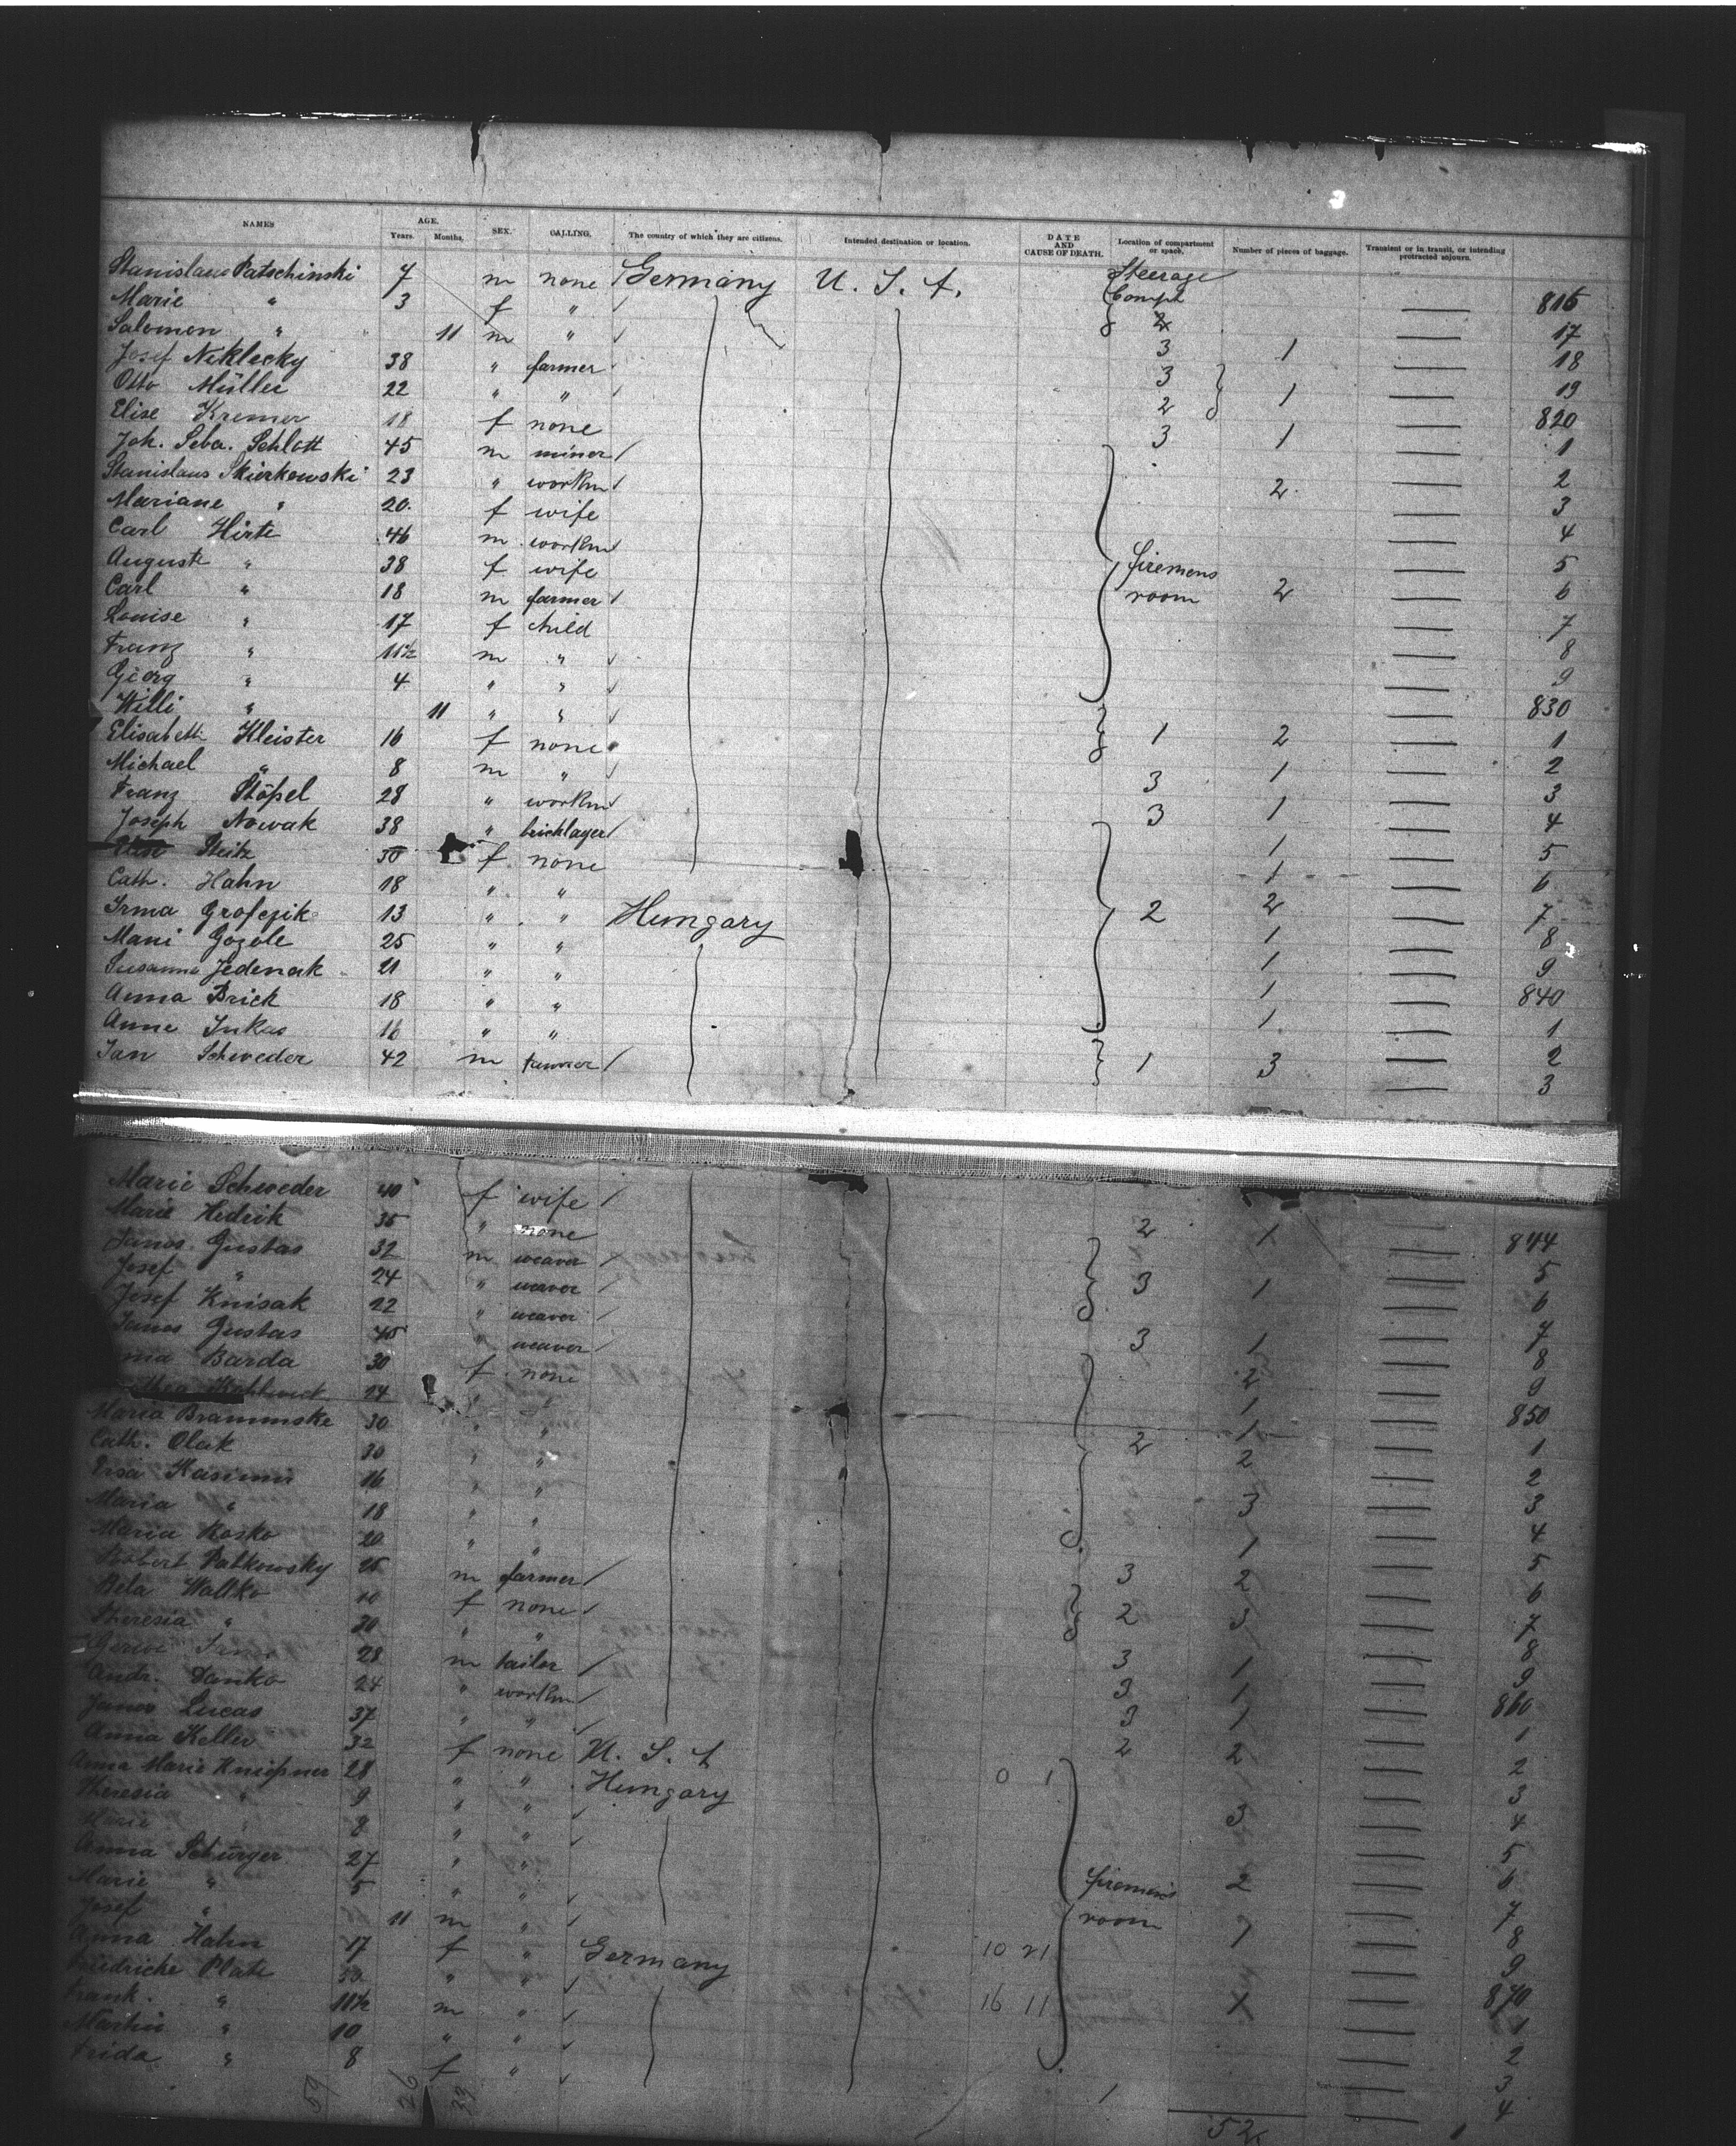 NAMES AGE. Years. Months. SEX. CALLING. The country of which they are citizens. Intended destination or location. DATE AND CAUSE OF DEATH. Location of compartment or space. Number of pieces of baggage. Transient or in transit, or intending protracted sojourn.
Stanislaus Patschinski 7 m none Germany U. S. A. Steerage Compt 816
Marie " 3 f " 2 17
Salomon " 11 m " 18
Josef Neklecky 38 " farmer 3 1 19
Otto Müller 22 " " 3 1 820
Elise Kremer 18 f none 2 1
Joh. Seba. Schlott 45 m miner 3 1 2
Stanislaus Skierkowski 23 " workm 2 3
Mariane " 20 f wife 4
Carl Hirte 46 m workm 5
Auguste " 38 f wife firemens 6
Carl " 18 m farmer room 2 7
Louise " 17 f child 8
Franz " 11½ m " 9
Georg " 4 " " 830
Willi " 11 " " 1
Elisabeth Kleister 16 f none 1 2 2
Michael " 8 m " 3
Franz Stöpel 28 " workm 3 1 4
Joseph Nowak 38 " bricklayer 3 1 5
Steitz 50 f none 1 6
Cath. Hahn 18 " " 1 7
Irma Grofczik 13 " " Hungary 2 2 8
Mani Gozole 25 " " 1 9
Susanna Jedenak 21 " " 1 840
Anna Brick 18 " " 1 1
Anne Inkas 16 " " 1 2
Jan Schweder 42 m 1 3 3
Marie Schweder 40 f wife 844
Marie Hedrik 35 " none 2 1 5
Janos Gustas 32 m weaver 6
Josef " 24 " weaver 3 1 7
Josef Knisak 22 " weaver 8
Janos Gustas 45 " weaver 3 1 9
Barda 30 f none 2 850
24 " " 1 1
Maria Brammske 30 " " 1 2
Cath. Olak 30 " " 2 2 3
16 " " 4
Maria " 18 " " 3 5
Maria Kosko 20 " " 1 6
Robert Patkowsky 25 m farmer 3 2 7
Bela Waltko 10 f none 2 3 8
Theresia " 30 " " 9
28 m tailer 3 1 860
Andr. Danko 24 " workm 3 1 1
Janos Lucas 37 " " 3 1 2
Anna Keller 32 f none U. S. A 2 2 3
Anna Marie Kniepner 28 " " Hungary 0 1 4
Theresia " 9 " " 3 5
Marie " 8 " " 6
Anna Schürger 27 " " 7
Marie " 5 " " firemens 2 8
Josef " 11 m " room 9
Anna Hahn 17 f " Germany 10 21 1 870
Friedricke Plate 33 " " 1
Frank. " 11½ m " 16 11 2
Martin " 10 " " 3
Frida " 8 f " 4
59 26 33 1 52